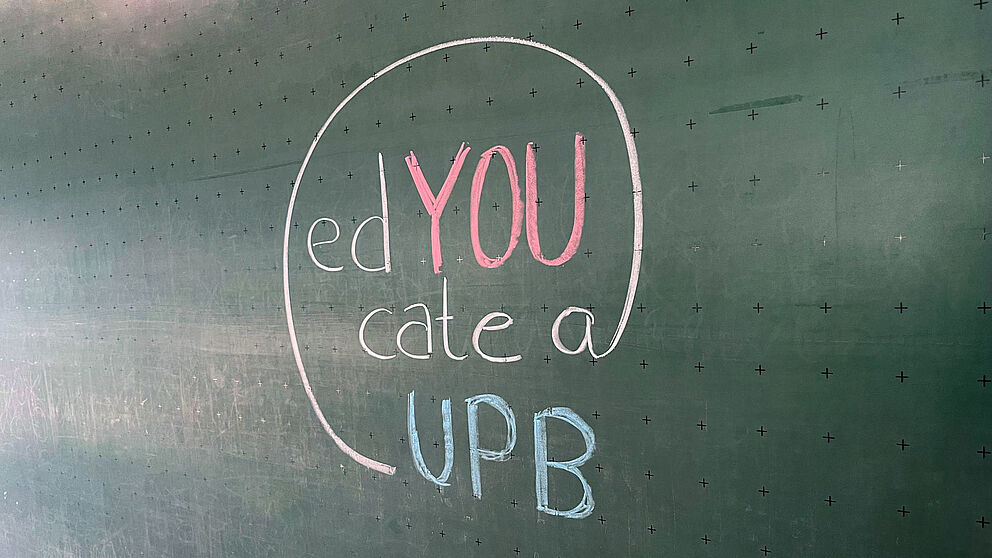 edYOU
cate a
UPB